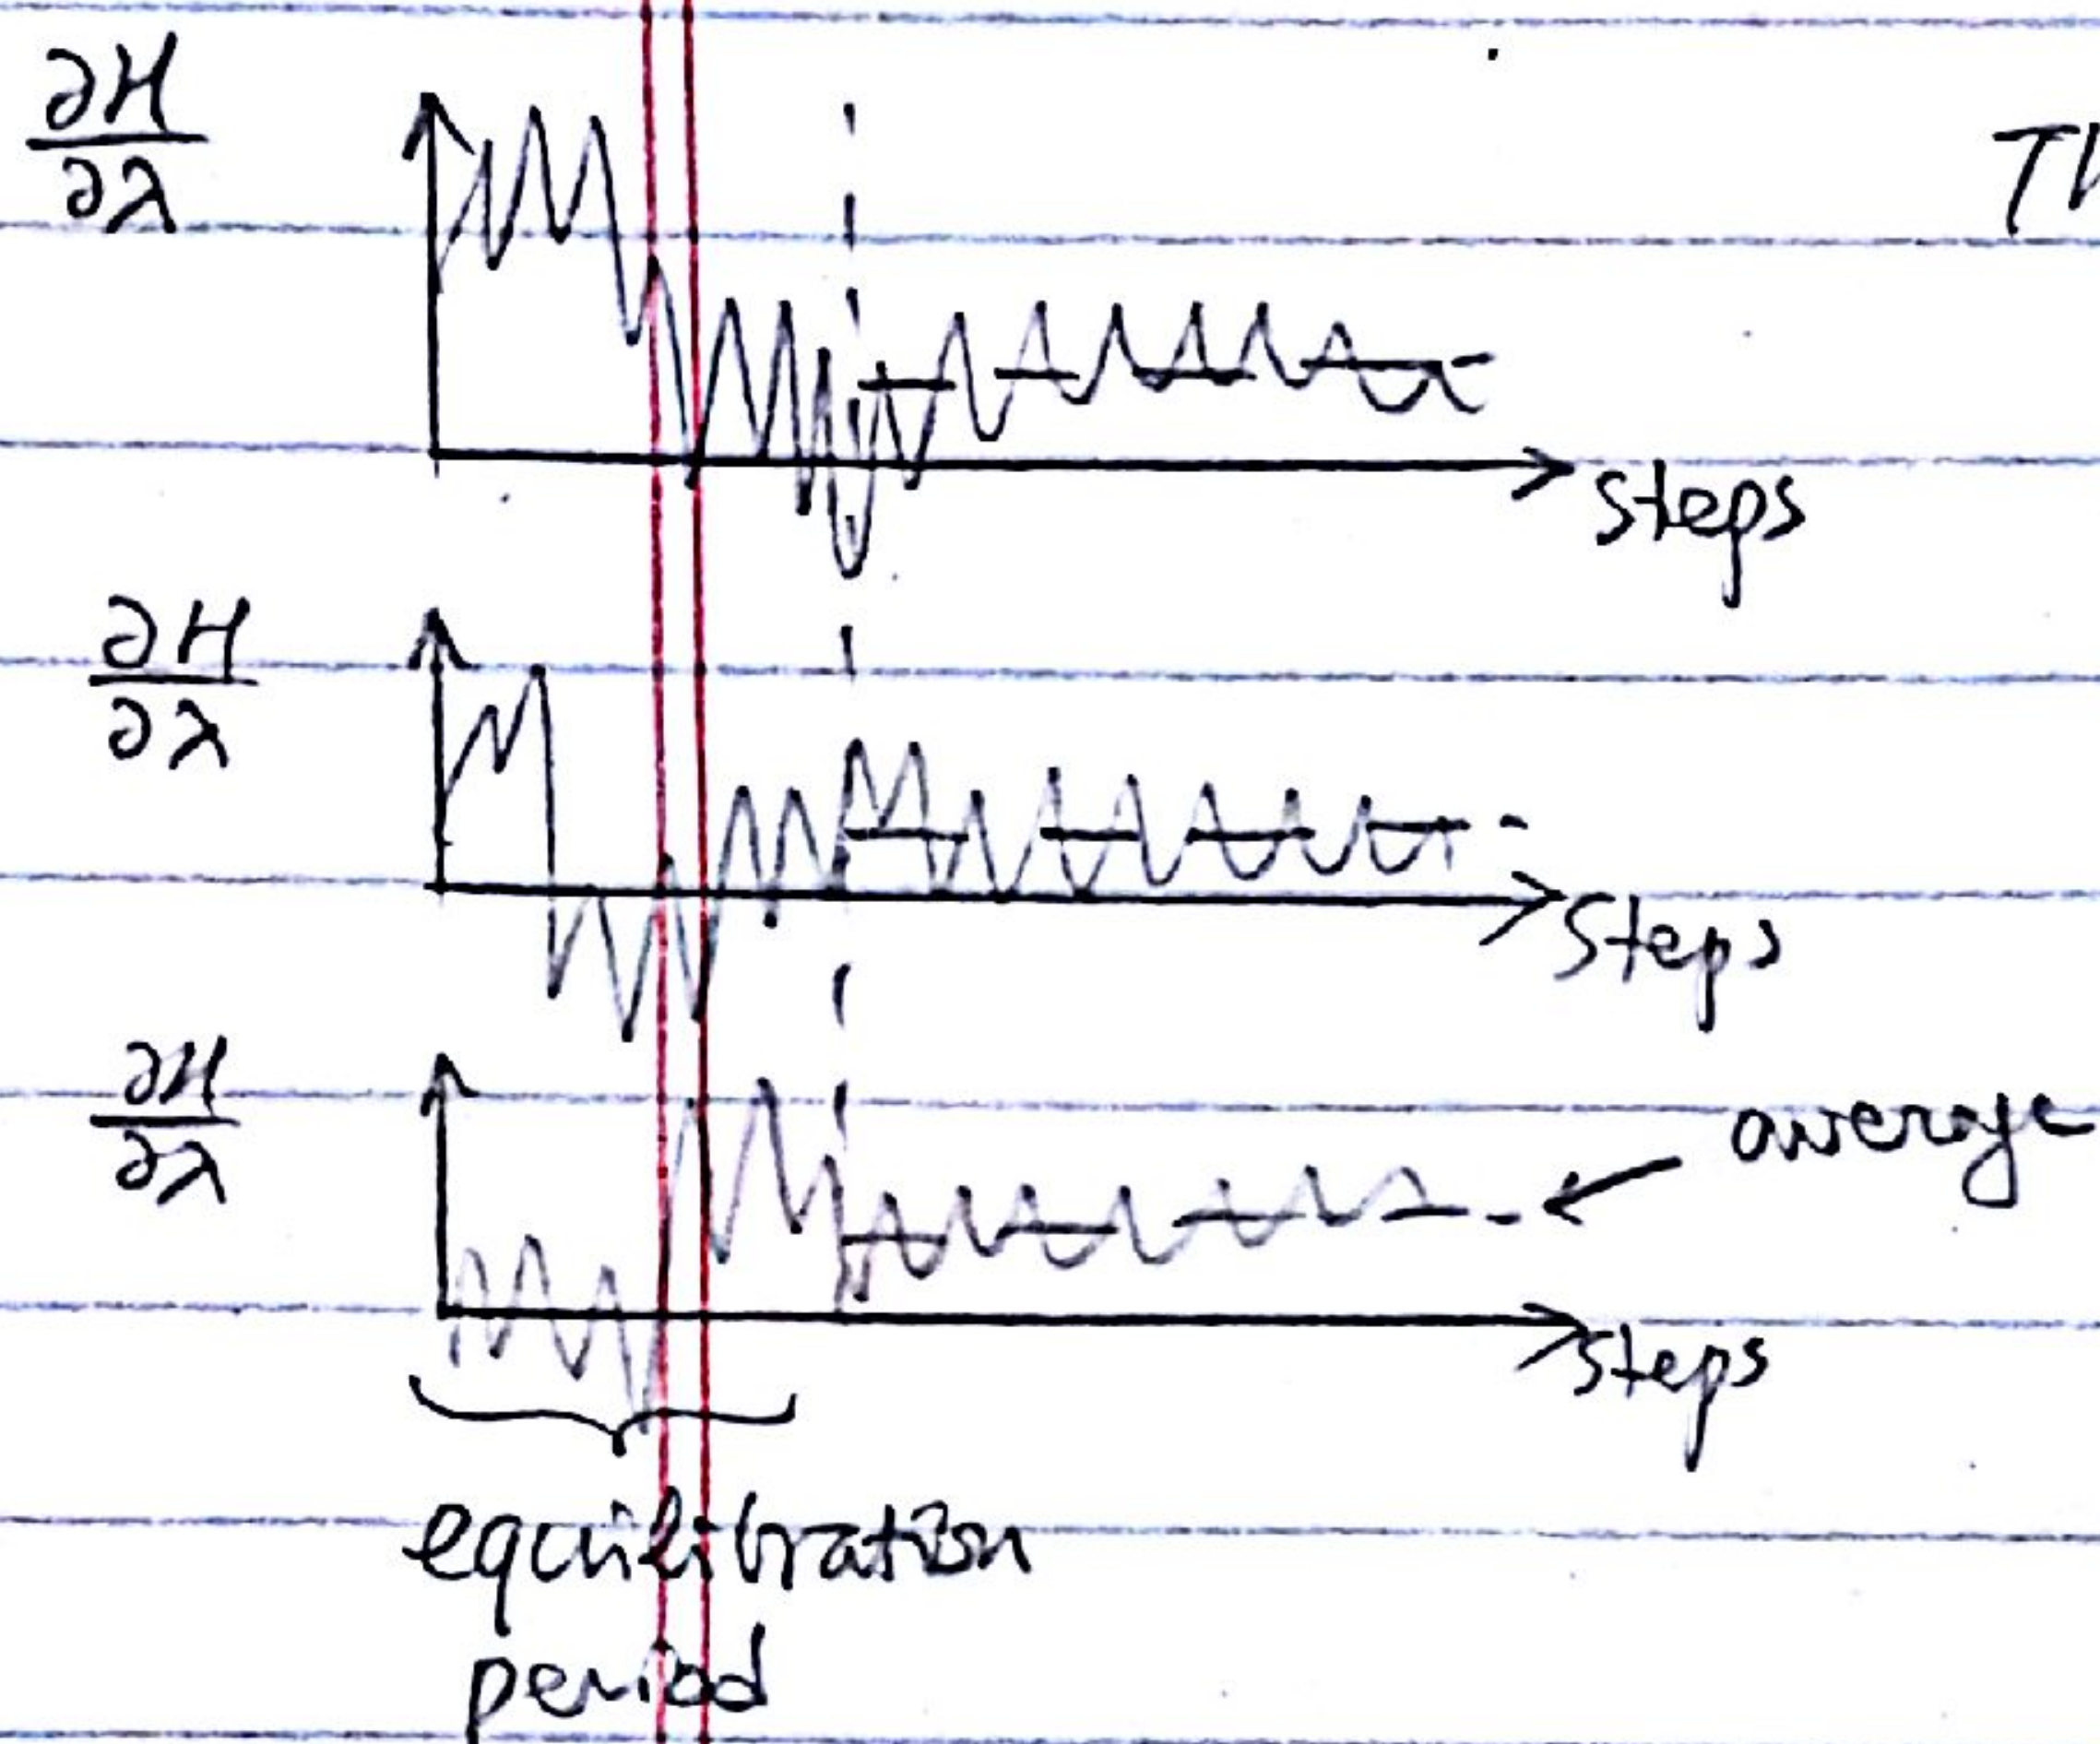 ∂H
∂λ
Steps
∂H
∂λ
Steps
∂H
∂λ
average
Steps
equilibration
period